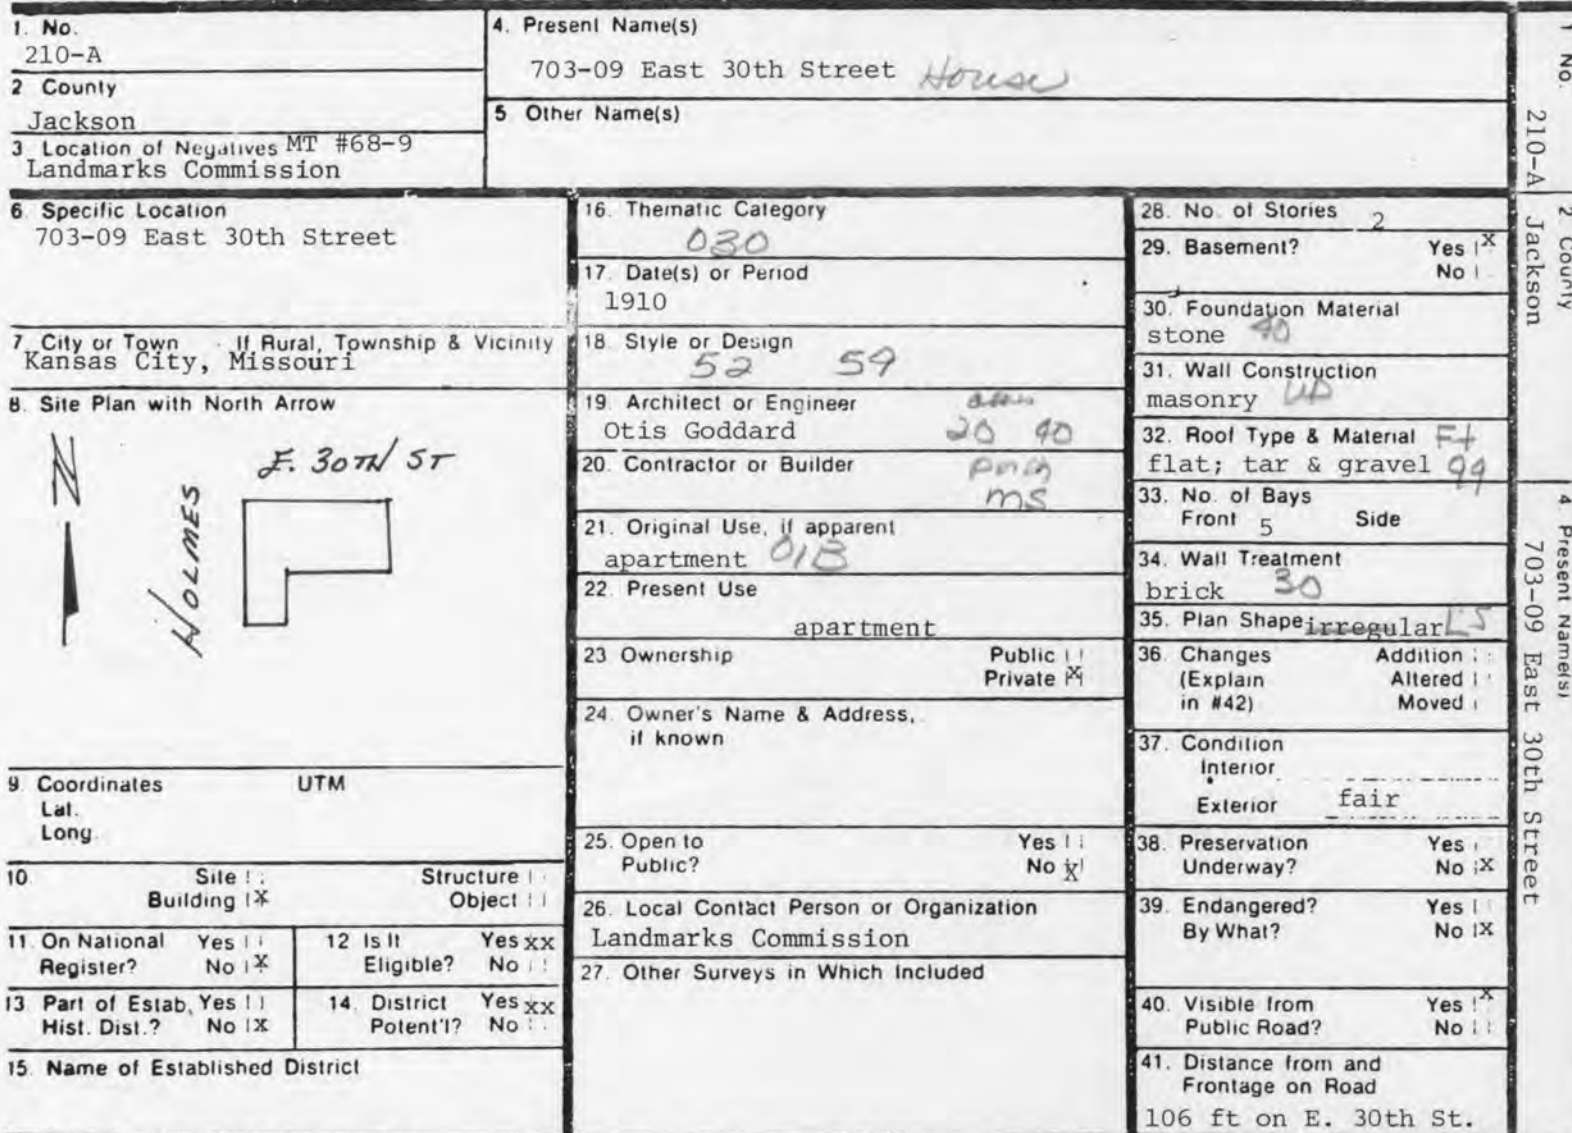 1. No.
210-A
2 County
Jackson
3 Location of Negatives MT #68-9
Landmarks Commission
4. Present Name(s)
703-09 East 30th Street House
5 Other Name(s)
6. Specific Location
703-09 East 30th Street
7 City or Town If Rural, Township & Vicinity
Kansas City, Missouri
8. Site Plan with North Arrow
N
E. 30TH ST
HOLMES
9. Coordinates UTM
Lat.
Long.
10. Site Structure
Building X Object
11. On National Yes
Register? No X
12 Is It Yes xx
Eligible? No
13. Part of Estab. Yes
Hist. Dist.? No X
14. District Yes xx
Potent'l? No
15. Name of Established District
16. Thematic Category
030
17. Date(s) or Period
1910
18. Style or Design
52 59
19. Architect or Engineer
Otis Goddard 20 40
20. Contractor or Builder porch
MS
21. Original Use, if apparent
apartment 01B
22. Present Use
apartment
23 Ownership Public
Private X
24. Owner's Name & Address,
if known
25. Open to Yes
Public? No X
26. Local Contact Person or Organization
Landmarks Commission
27. Other Surveys in Which Included
28. No. of Stories 2
29. Basement? Yes X
No
30. Foundation Material
stone 40
31. Wall Construction
masonry UD
32. Roof Type & Material Ft
flat; tar & gravel 99
33. No. of Bays
Front 5 Side
34. Wall Treatment
brick 30
35. Plan Shape irregular LS
36. Changes Addition
(Explain Altered
in #42) Moved
37. Condition
Interior
Exterior fair
38. Preservation Yes
Underway? No X
39. Endangered? Yes
By What? No X
40. Visible from Yes X
Public Road? No
41. Distance from and
Frontage on Road
106 ft on E. 30th St.
1 No.
210-A
2 County
Jackson
4 Present Name(s)
703-09 East 30th Street